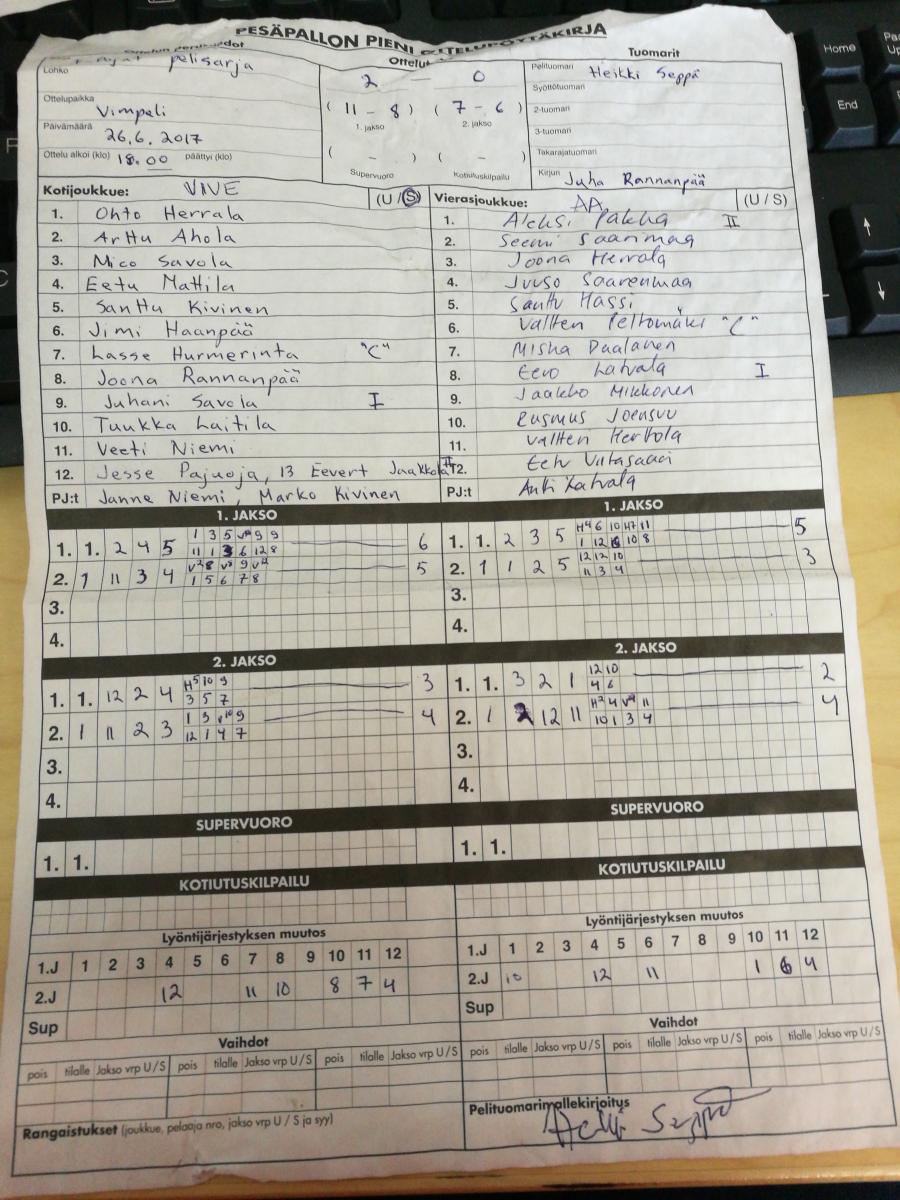 PESÄPALLON PIENI OTTELUPÖYTÄKIRJA
Lohko pelisarja
2 — 0
Ottelupaikka Vimpeli
( 11 - 8 ) ( 7 - 6 )
1. jakso 2. jakso
Päivämäärä 26.6.2017
Ottelu alkoi (klo) 18.00 päättyi (klo)
( - ) ( - )
Supervuoro Kotiutuskilpailu
Tuomarit
Pelituomari Heikki Seppä
Syöttötuomari
2-tuomari
3-tuomari
Takarajatuomari
Kirjuri Juha Rannanpää
Kotijoukkue: VIVE (U / S)
1. Ohto Herrala
2. Arttu Ahola
3. Mico Savola
4. Eetu Mattila
5. Santtu Kivinen
6. Jimi Haanpää
7. Lasse Hurmerinta "C"
8. Joona Rannanpää
9. Juhani Savola I
10. Tuukka Laitila
11. Veeti Niemi
12. Jesse Pajuoja, 13 Eevert Jaakkola II
PJ:t Janne Niemi, Marko Kivinen
Vierasjoukkue: AA (U / S)
1. Aleksi Pakka II
2. Seemi Saarimaa
3. Joona Herrala
4. Juuso Saarenmaa
5. Santtu Hassi
6. Valtteri Peltomäki "C"
7. Misha Daalanen
8. Eero Latvala I
9. Jaakko Mikkonen
10. Rasmus Joensuu
11. Valtteri Herttola
12. Eetu Viitasaari
PJ:t Antti Latvala
1. JAKSO
1. 1. 2 4 5 6
2. 1 11 3 4 5
3.
4.
1. JAKSO
1. 1. 2 3 5 5
2. 1 1 2 5 3
3.
4.
2. JAKSO
1. 1. 12 2 4 H5 10 9 3
3 5 7
2. 1 11 2 3 1 3 V10 9 4
12 1 4 7
3.
4.
2. JAKSO
1. 1. 3 2 1 12 10 2
4 6
2. 1 12 11 4
10 1 3 4
3.
4.
SUPERVUORO
1. 1.
SUPERVUORO
1. 1.
KOTIUTUSKILPAILU
KOTIUTUSKILPAILU
Lyöntijärjestyksen muutos
1.J 1 2 3 4 5 6 7 8 9 10 11 12
2.J 12 11 10 8 7 4
Sup
Lyöntijärjestyksen muutos
1.J 1 2 3 4 5 6 7 8 9 10 11 12
2.J 10 12 11 1 6 4
Sup
Vaihdot
pois tilalle Jakso vrp U / S pois tilalle Jakso vrp U / S pois tilalle Jakso vrp U / S
Vaihdot
pois tilalle Jakso vrp U / S pois tilalle Jakso vrp U / S pois tilalle Jakso vrp U / S
Rangaistukset (joukkue, pelaaja nro, jakso vrp U / S ja syy)
Pelituomarin allekirjoitus
Heikki Seppä